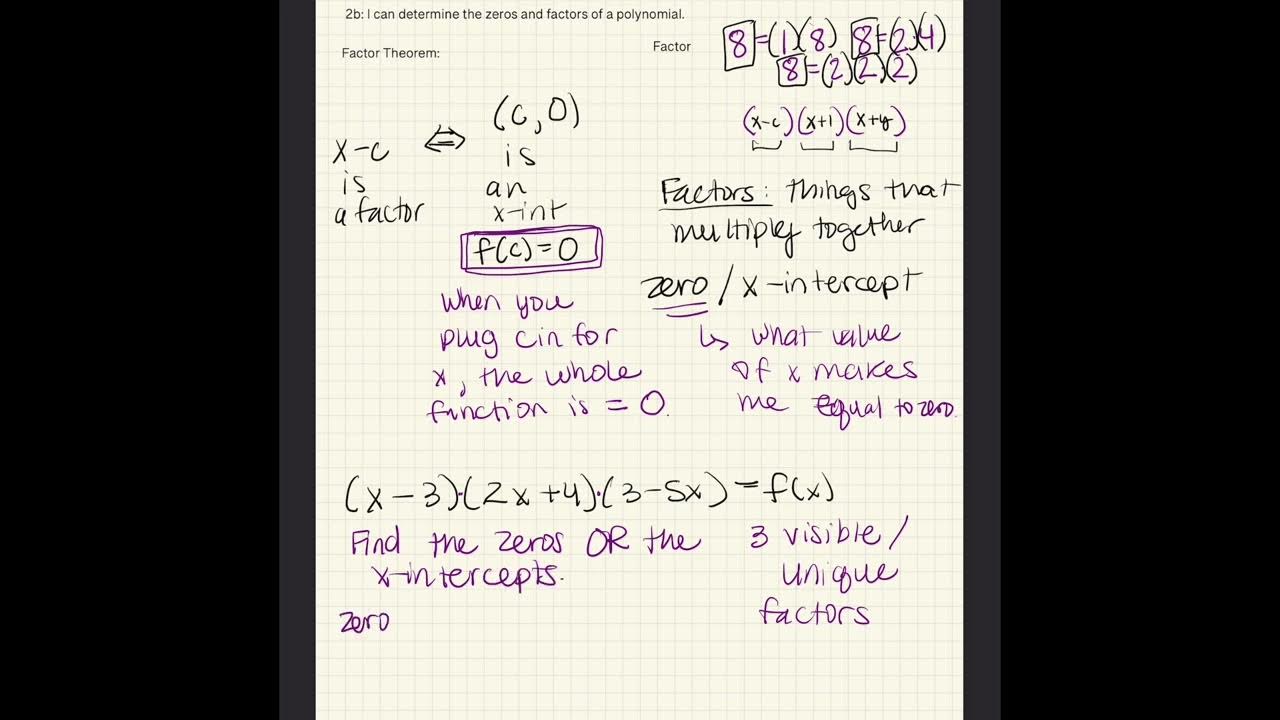 2b: I can determine the zeros and factors of a polynomial.
Factor Theorem:
Factor
8 =(1)(8) 8=(2)(4)
8 =(2)(2)(2)
(x-c)(x+1)(x+y)
x-c
is
a factor
⇔
(c,0)
is
an
x-int
f(c)=0
when you
plug c in for
x, the whole
function is = 0.
Factors: things that
multiply together
zero / x-intercept
↳ what value
of x makes
me equal to zero.
(x-3)·(2x+4)·(3-5x) = f(x)
Find the zeros OR the
x-intercepts.
3 visible/
unique
factors
zero